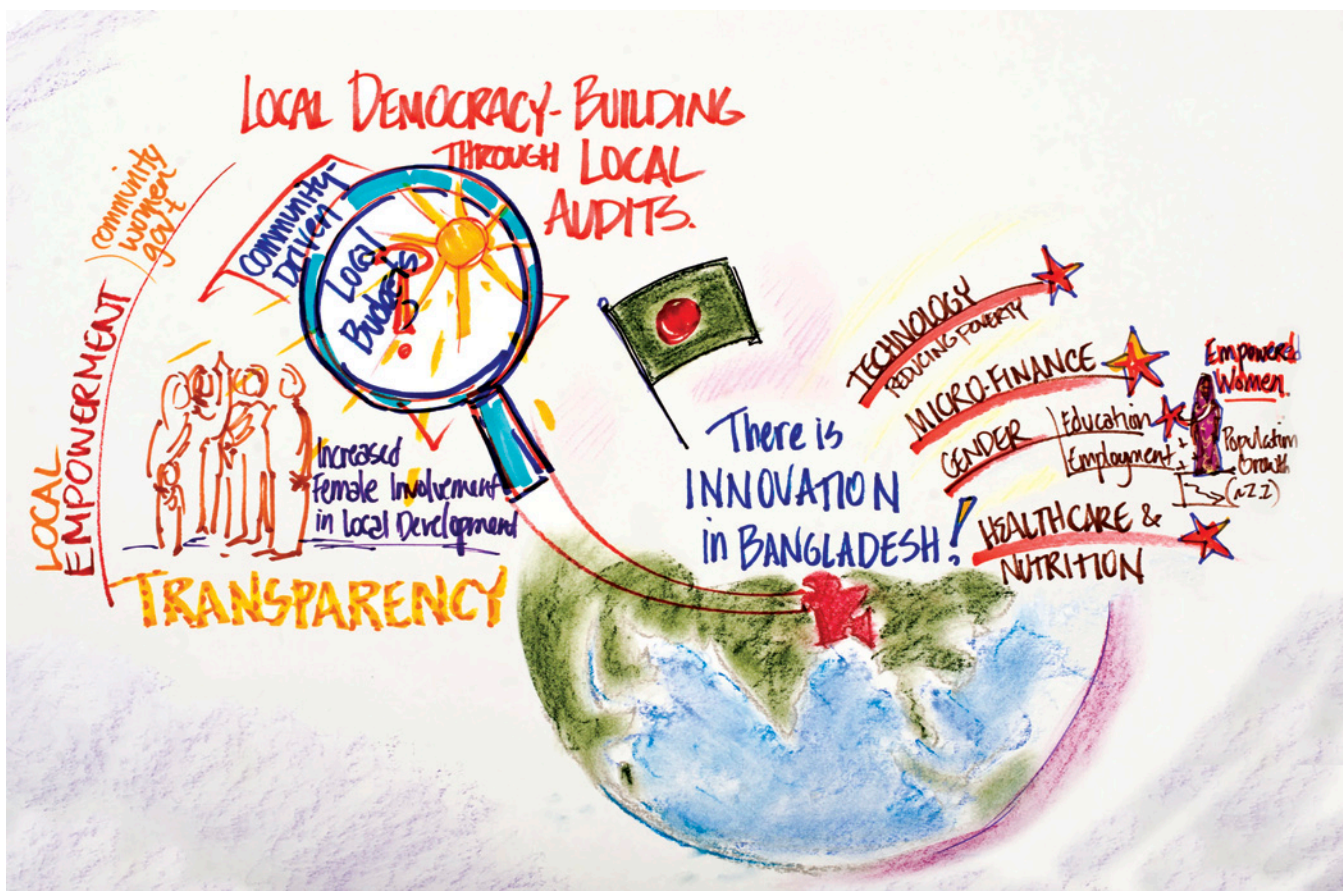 LOCAL DEMOCRACY-BUILDING
THROUGH LOCAL
AUDITS.
community
women
gov't
LOCAL
EMPOWERMENT
Community-
Driven
Local
Budgets
?
Increased
Female Involvement
in Local Development
TRANSPARENCY
There is
INNOVATION
in BANGLADESH!
TECHNOLOGY
REDUCING POVERTY
MICRO-FINANCE
GENDER
Education
Employment
Empowered
Women.
Population
Growth
HEALTHCARE &
NUTRITION